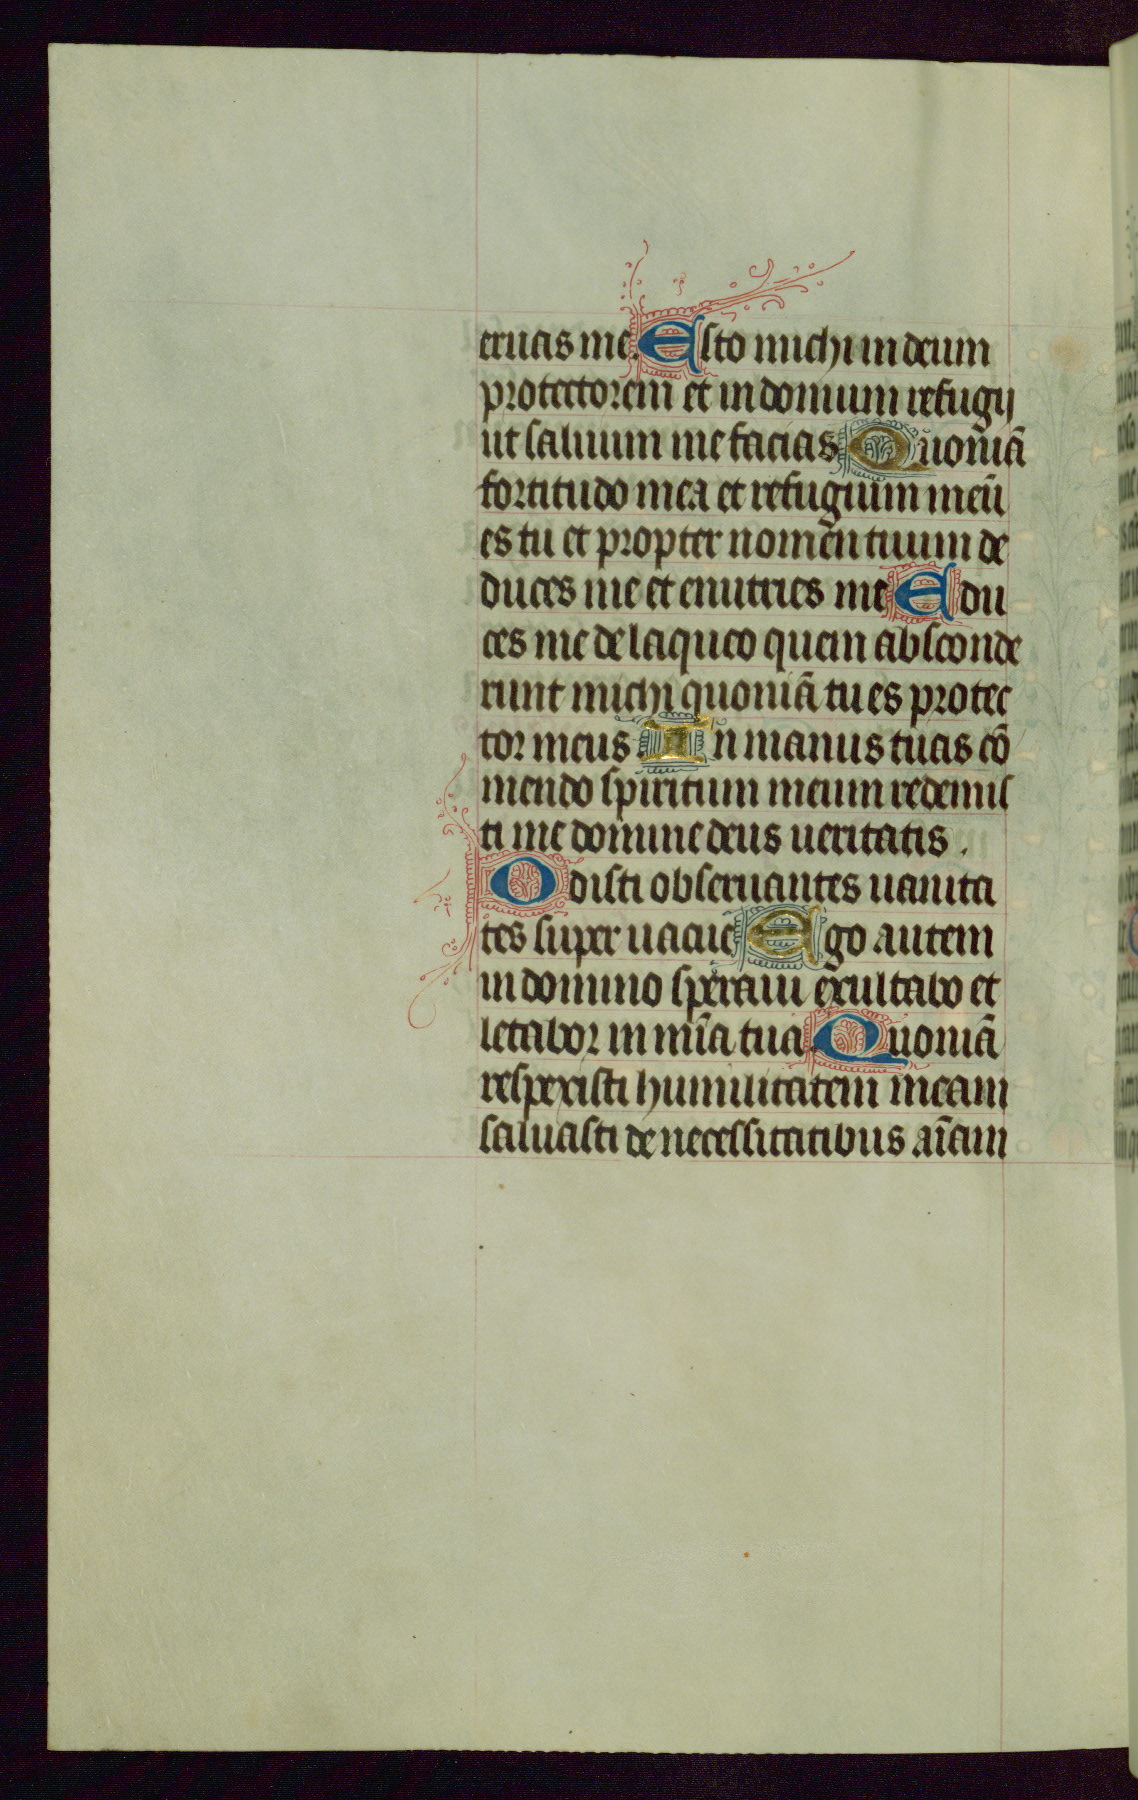 eruas me. Esto michi in deum
protectorem et in domum refugij
ut saluum me facias Quoniā
fortitudo mea et refugium meū
es tu et propter nomen tuum de
duces me et enutries me Edu
ces me de laqueo quem absconde
runt michi quoniā tu es protec
tor meus In manus tuas cō
mendo spiritum meum redemis
ti me domine deus ueritatis .
Odisti obseruantes uanita
tes super uacue Ego autem
in domino speraui exultabo et
letabor in mīa tua Quoniā
respexisti humilitatem meam
saluasti de necessitatibus aīam